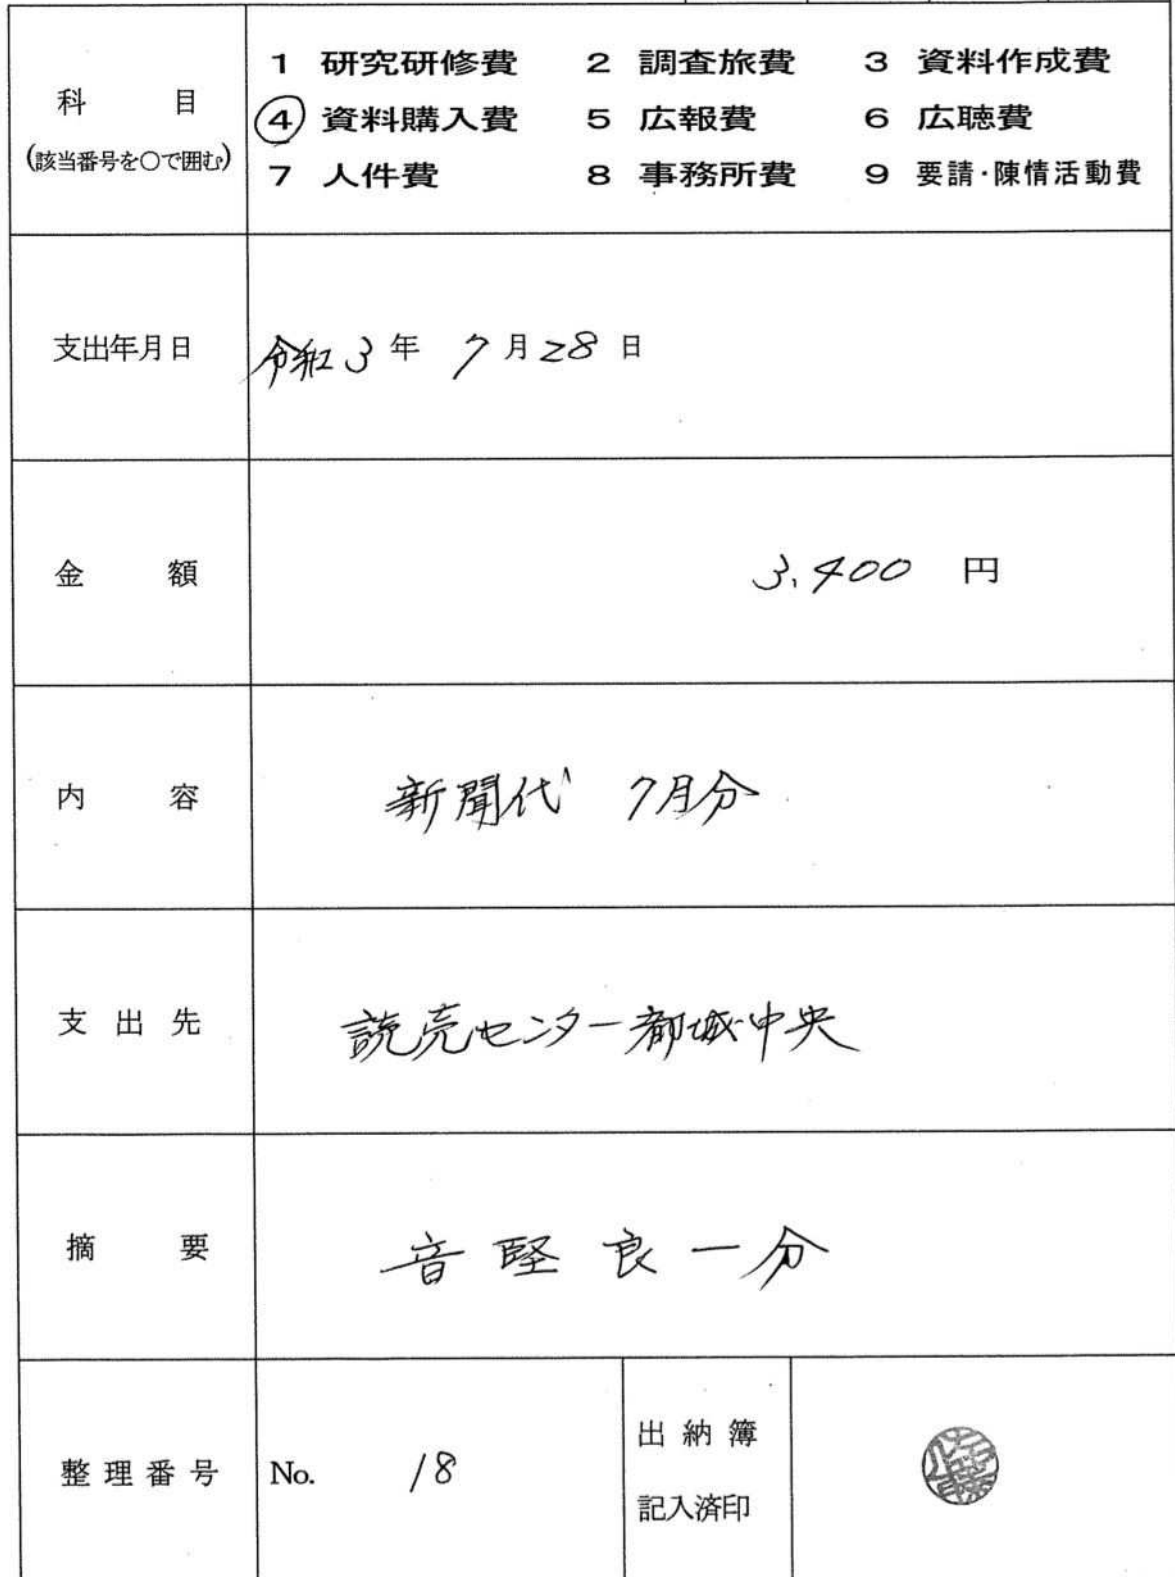 科目
(該当番号を○で囲む)
1 研究研修費 2 調査旅費 3 資料作成費
④ 資料購入費 5 広報費 6 広聴費
7 人件費 8 事務所費 9 要請・陳情活動費
支出年月日 令和3年 7月28日
金額 3,400 円
内容 新聞代 7月分
支出先 読売センター都城中央
摘要 音堅良一分
整理番号 No. 18
出納簿
記入済印